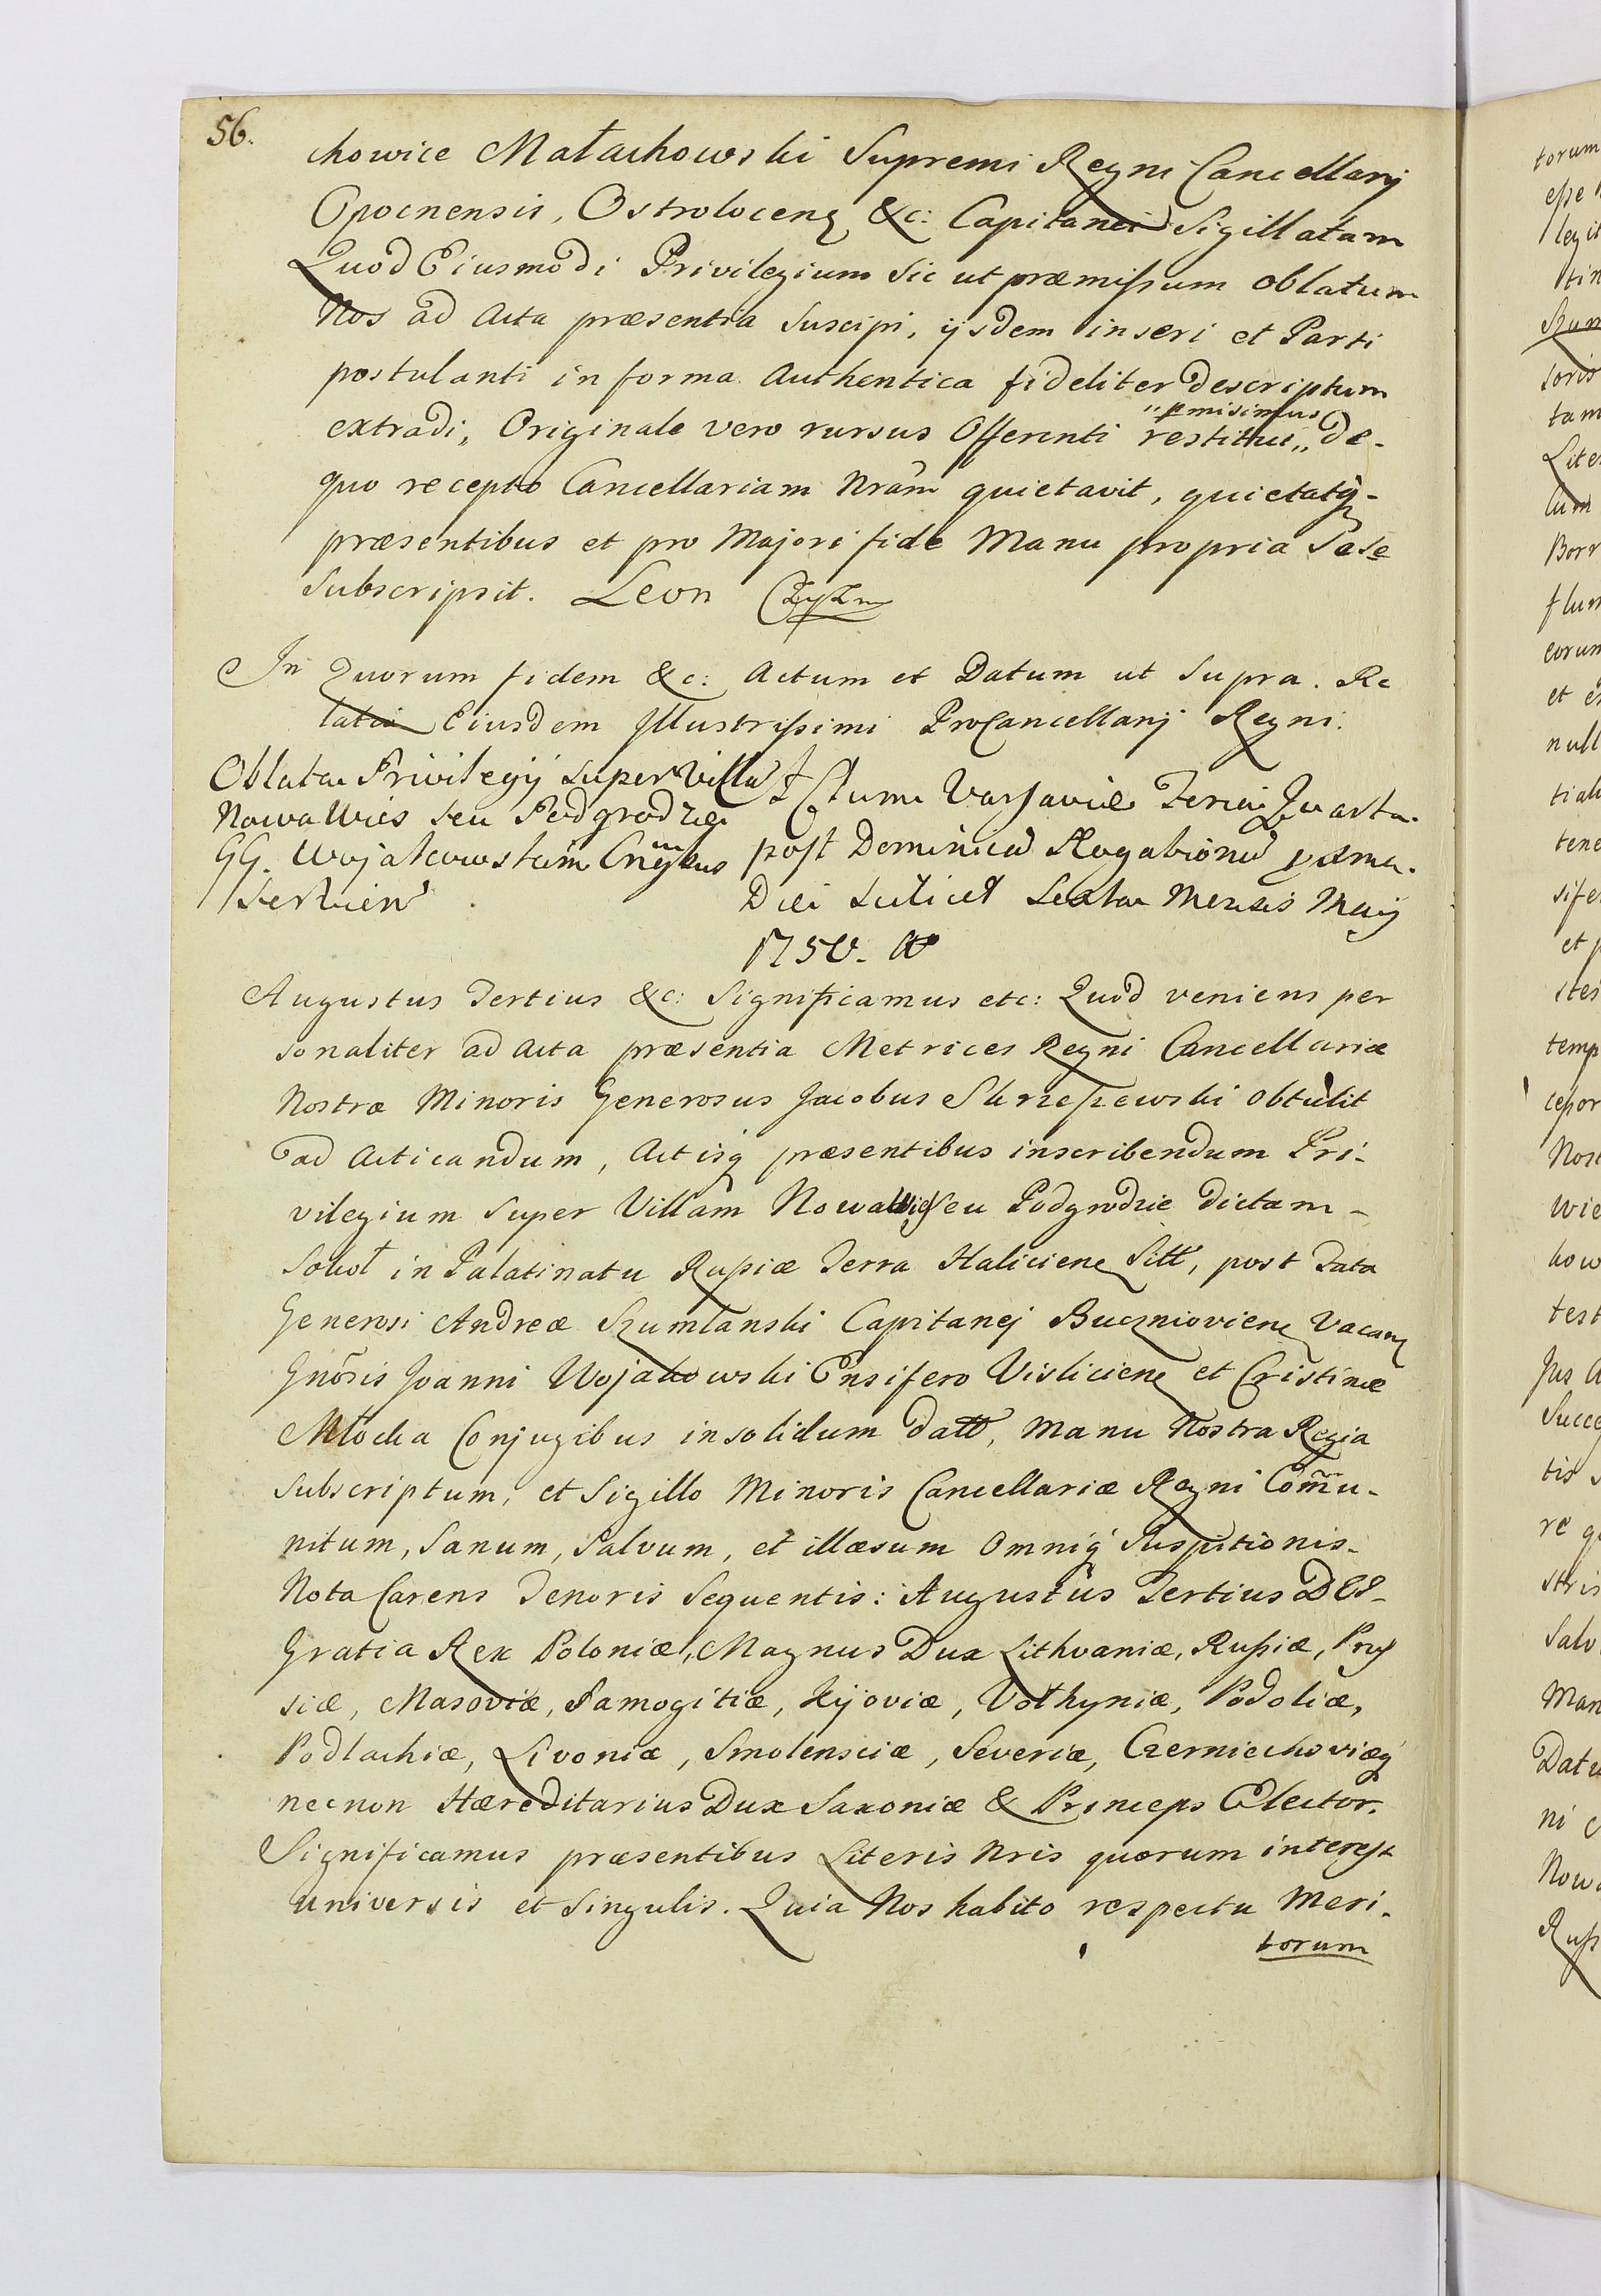 56.
chowice Małachowski Supremi Regni Cancellarij
Opocnensis, Ostroloceng &c: Capitanei Sigillatam
Quod Eiusmodi Privilegium sic ut præmissum oblatum
Nos ad Acta præsentia Suscipi, ijsdem inseri et Parti
postulanti in forma Authentica fideliter descriptum
extradi, Originale vero rursus Offerenti restitui „ de-
„ pmisimus
quo recepto Cancellariam Nrãm quietavit, quietatq-
præsentibus et pro Majori fide Manu propria Sese
Subscripsit. Leon
In Quorum fidem &c: Actum et Datum ut Supra. Re
latio Eiusdem Illustrissimi ProCancellarij Regni.
Oblata Privilegij super Villa
Nowa Wies seu Podgrodzie
GG. Wojakowskim
Servien
Actum Varsaviæ Feria Quarta
post Dominicã Rogationũ
Diei Scilicet Sexta Mensis Maij
1750.
Augustus Tertius &c: Significamus etc: Quod veniens per
sonaliter ad Acta præsentia Metrices Regni Cancellariæ
Nostræ Minoris Generosus Jacobus Skrzeszewski obtulit
ad Acticandum, Actisq præsentibus inscribendum Pri-
vilegium Super Villam Nowawies Seu Podgrodzie dictam-
Sokoł in Palatinatu Russiæ Terra Haliciene Sitt, post Fata
Generosi Andreæ Szumlanski Capitanej Buczniovienẽ Vacan
Gnõsis Joanni Wojakowski Ensifero Visliciene et Cristinæ
Młocka Conjugibus insolidum datt, Manu Nostra Regia
subscriptum, et Sigillo Minoris Cancellariæ Regni Com̃u-
nitum, Sanum, Salvum, et illæsum Omniq Suspitionis-
Nota Carens Tenoris Sequentis: Augustus Tertius DEI-
Gratia Rex Poloniæ, Magnus Dux Lithvaniæ, Russiæ, Prus
siæ, Masoviæ, Samogitiæ, Kijoviæ, Volhyniæ, Podoliæ,
Podlachiæ, Livoniæ, Smolensciæ, Severiæ, Czerniechoviæq
necnon Hæreditarius Dux Saxoniæ & Princeps Elector.
Significamus præsentibus Literis Nris quorum interest
universis et Singulis. Quia Nos habito respectu Meri-
torum